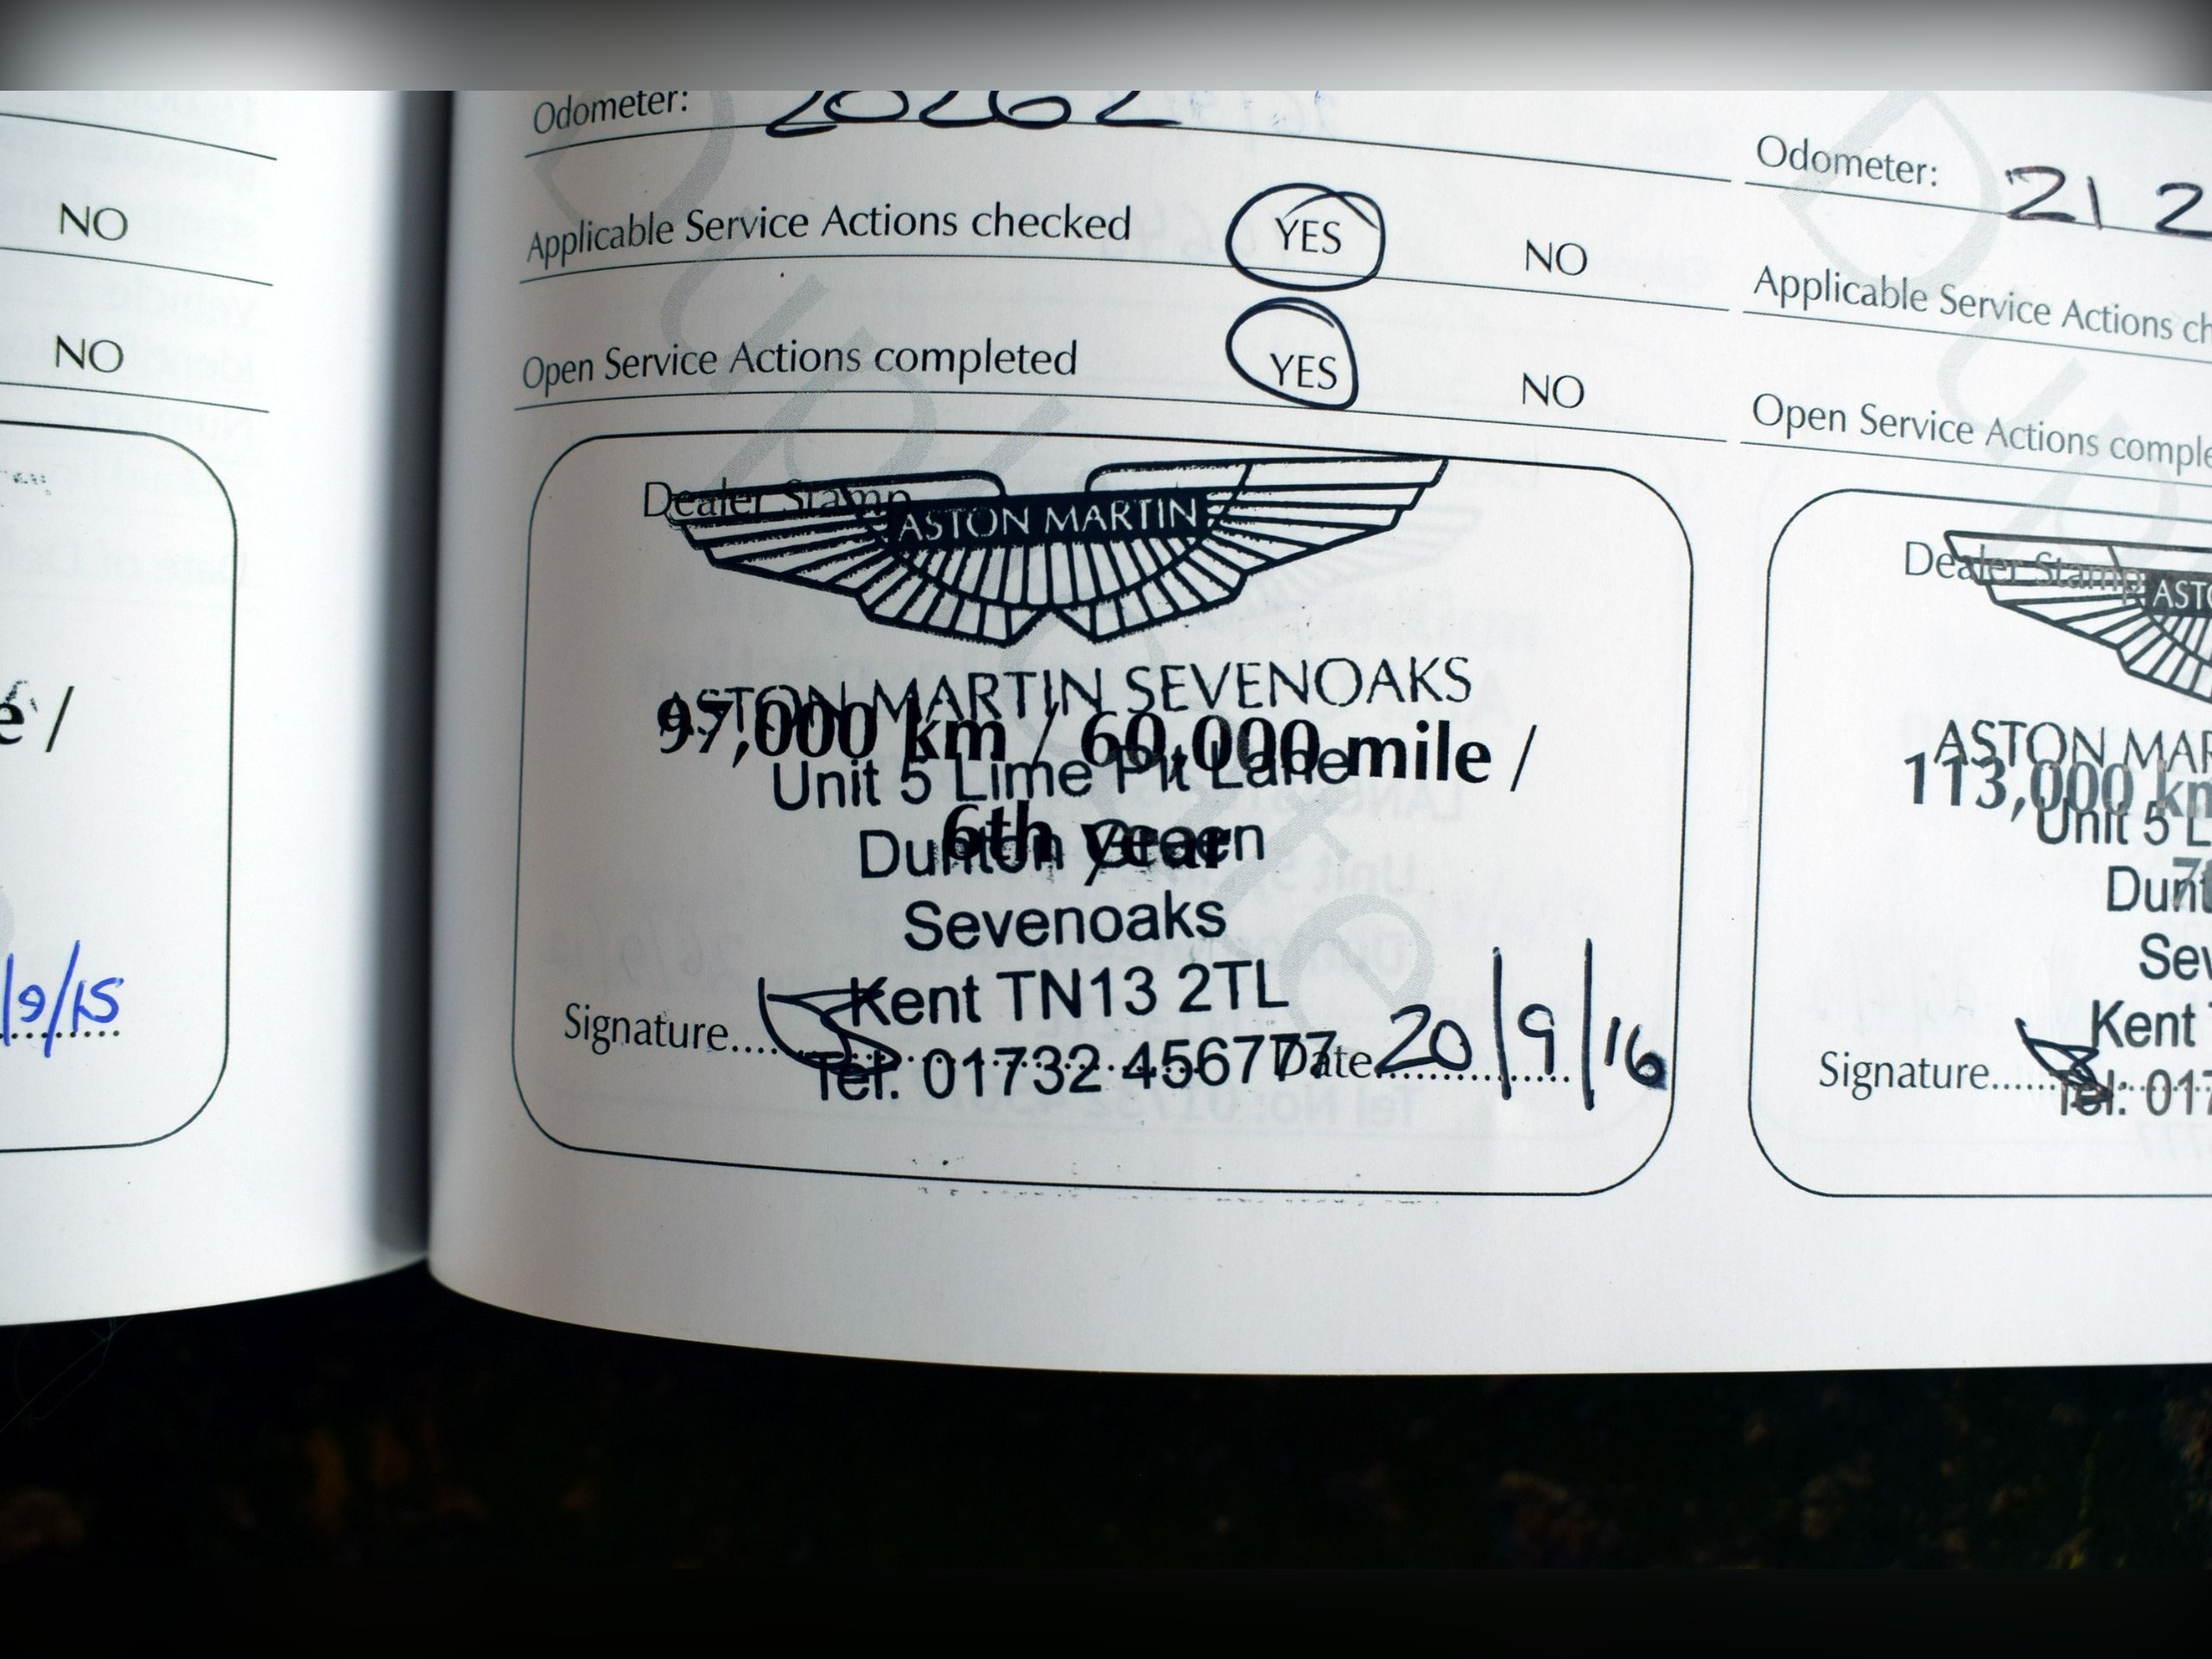 NO
NO
e /
/9/15
Odometer: 20262
Applicable Service Actions checked YES NO
Open Service Actions completed YES NO
Duplicate
Dealer Stamp
ASTON MARTIN
ASTON MARTIN SEVENOAKS
97,000 km / 60,000 mile /
Unit 5 Lime Pit Lane
6th year
Dunton Green
Sevenoaks
Kent TN13 2TL
Signature
Tel: 01732 456777
Date 20/9/16
Odometer: 21 2
Applicable Service Actions ch
Open Service Actions comple
Dupl
Dealer Stamp
ASTO
ASTON MAR
113,000 km
Unit 5 L
7t
Dunt
Sev
Kent
Signature
Tel: 017